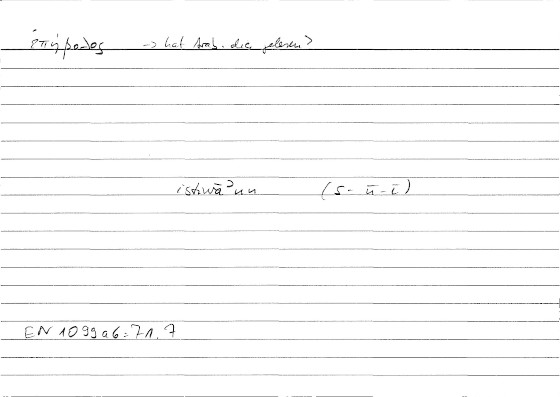 ἐπήβολος → hat Arab. dies gelesen?
istiwāʾun (s-w-y)
EN 1099a6 = 71,7